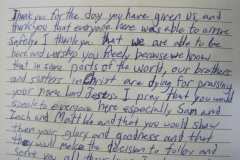 Thank you for the day you have given us, and
thank you that everyone here was able to arrive
safely. I thank you that we are able to be
here and worship you freely, because we know
that in some parts of the world, our brothers
and sisters in Christ are dying for praising
your name Lord Jesus. I pray that you would
speak to everyone here especially Sam and
Zach and Matt and that you would show
them your glory and goodness and that
they will make the decision to follow and
serve you all